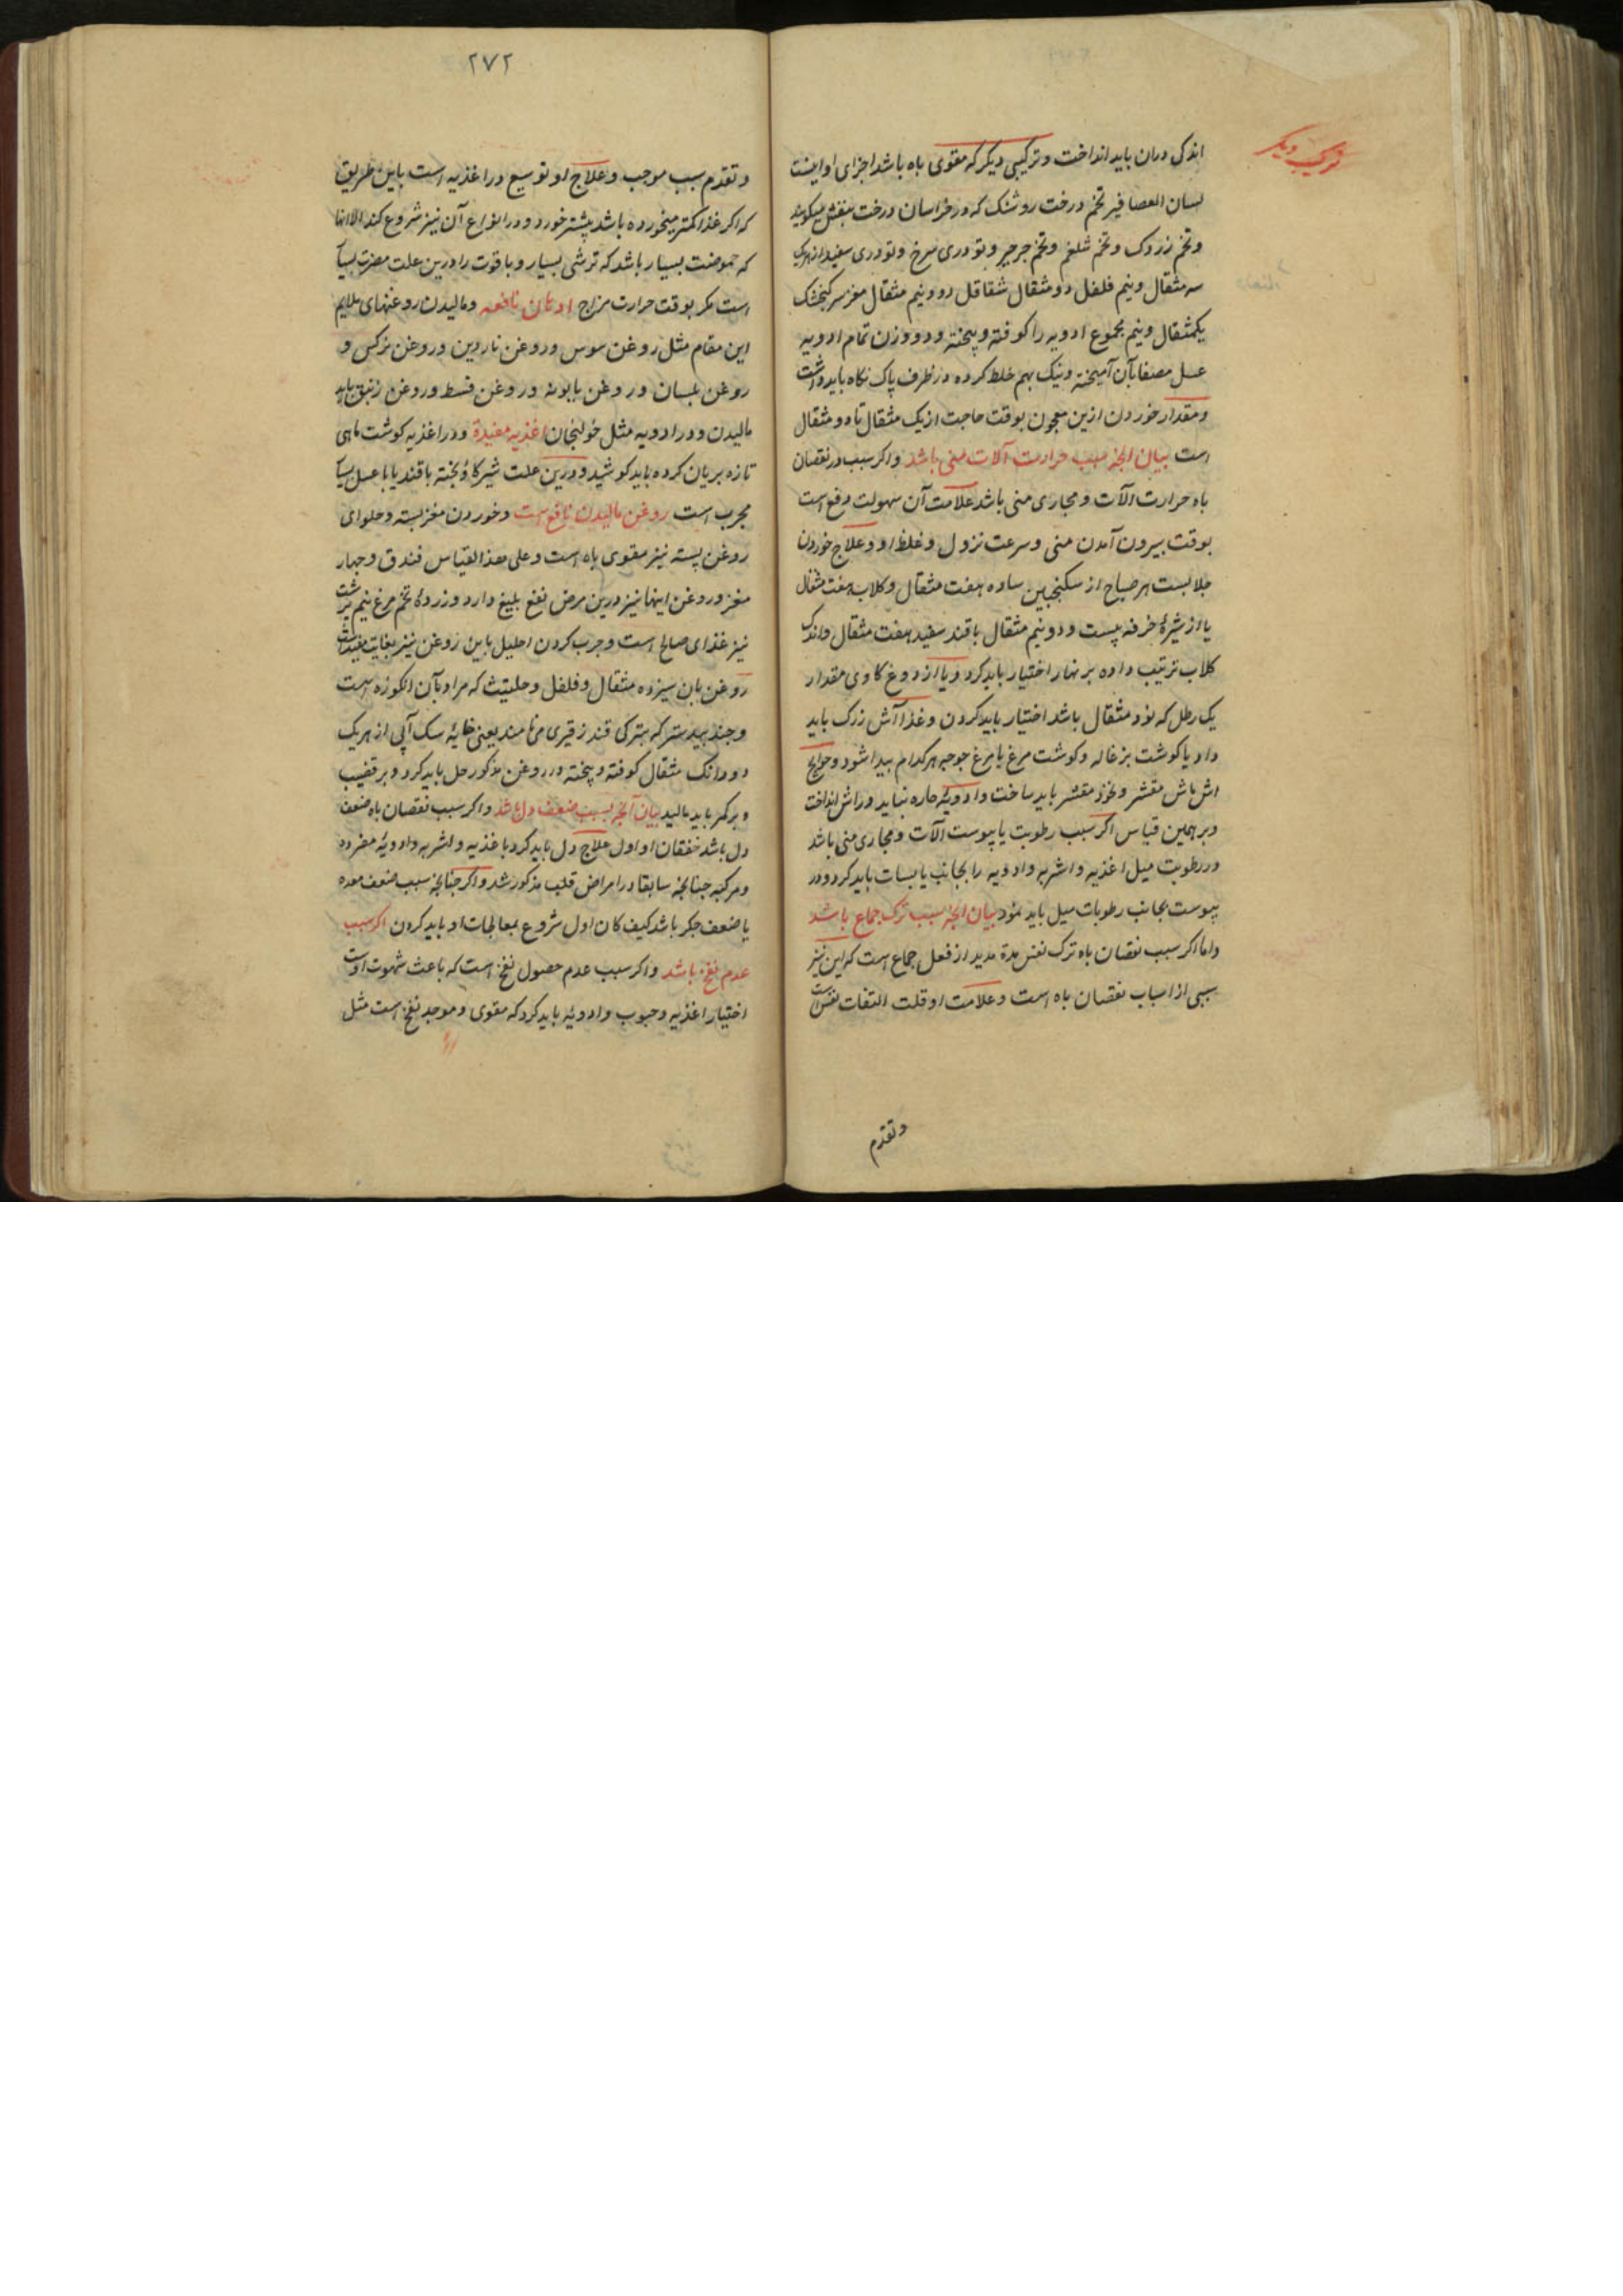 ترکیب دیگر
اندکی دران باید انداخت و ترکیبی دیگر که مقوی باه باشد اجزای او اینست
لسان العصافیر تخم درخت روشنک که در خراسان درخت بنفش میکویند
و تخم زردک و تخم شلغم و تخم جرجیر و تودری سرخ و تودری سفید از هریک
سه مثقال و نیم فلفل دو مثقال شقاقل دو و نیم مثقال مغز سر کنجشک
یکمثقال و نیم مجموع ادویه را کوفته و پیخته و دو وزن تمام ادویه
عسل مصفا بآن آمیخته و نیک بهم خلط کرده در ظرف پاک نکاه باید داشت
و مقدار خوردن ازین معجون بوقت حاجت از یک مثقال تا دو مثقال
است بیان انچه سبب حرارت آلات منی باشد و اکر سبب در نقصان
باه حرارت الآت و مجاری منی باشد علامت آن سهولت دفع است
بوقت بیرون آمدن منی و سرعت نزول و غلظ او و علاج خوردن
جلابست هر صباح از سکنجبین ساده هفت مثقال و کلاب هفت مثقال
یا از شیرهٔ خرفه بیست و دو نیم مثقال با قند سفید هفت مثقال و اندک
کلاب ترتیب داده بر نهار اختیار باید کرد و یا از دوغ کاوی مقدار
یک رطل که نود مثقال باشد اختیار باید کردن و غذا آش زرک باید
داد یا کوشت بزغاله و کوشت مرغ یا مرغ جوجه هر کدام پیدا شود و حوایج
اش ماش مقشر و نخود مقشر باید ساخت و ادویهٔ حاره نباید در اش انداخت
و بر همین قیاس اکر سبب رطوبت یا یبوست الآت و مجاری منی باشد
در رطوبت میل اغذیه و اشربه و ادویه را بجانب یابسات باید کرد و در
یبوست بجانب رطوبات میل باید نمود بیان انچه سبب ترک جماع باشد
و اما اکر سبب نقصان باه ترک نفس مدة مدید از فعل جماع است که این نیز
سببی از اسباب نقصان باه است و علامت او قلت التفات نفس است
و تقدم
۲۷۲
و تقدم سبب موجب و علاج او توسیع در اغذیه است باین طریق
که اکر غذا کمتر میخورده باشد بیشتر خورد و در انواع آن نیز شروع کند الا انها
که حموضت بسیار باشد که ترشی بسیار و با قوت را درین علت مضرت بسیار
است مکر بوقت حرارت مزاج ادهان نافعه و مالیدن روغنهای ملایم
این مقام مثل روغن سوس و روغن ناردین و روغن نرکس و
روغن بلسان و روغن بابونه و روغن قسط و روغن زنبق باید
مالیدن و در ادویه مثل خولنجان اغذیه مفیدة و در اغذیه کوشت ماهی
تازه بریان کرده باید کوشید و درین علت شیر کاو پخته با قند یا با عسل بسیار
مجرب است روغن مالیدن نافع است و خوردن مغز پسته و حلوای
روغن پسته نیز مقوی باه است و علی هذا القیاس فندق و چهار
مغز و روغن اینها نیز درین مرض نفع بلیغ دارد و زردهٔ تخم مرغ نیم برشت
نیز غذای صالح است و چرب کردن احلیل باین روغن نیز بغایت مفید است
روغن بان سیزده مثقال و فلفل و حلتیث که مراد بآن انکوزه است
و جند بیدستر که بترکی قندز قیری می نامند یعنی خایهٔ سک آبی از هریک
دو دانک مثقال کوفته و پیخته در روغن مذکور حل باید کرد و بر قضیب
و بر کمر باید مالید بیان آنچه بسبب ضعف دل باشد و اکر سبب نقصان باه ضعف
دل باشد خفقان او اول علاج دل باید کرد باغذیه و اشربه و ادویهٔ مفرده
و مرکبه چنانچه سابقا در امراض قلب مذکور شد و اکر چنانچه سبب ضعف معده
یا ضعف جکر باشد کیف کان اول شروع بمعالجات او باید کردن اکر سبب
عدم نفخ باشد و اکر سبب عدم حصول نفخ است که باعث شهوت اوست
اختیار اغذیه و حبوب و ادویه باید کرد که مقوی و موجد نفخ است مثل